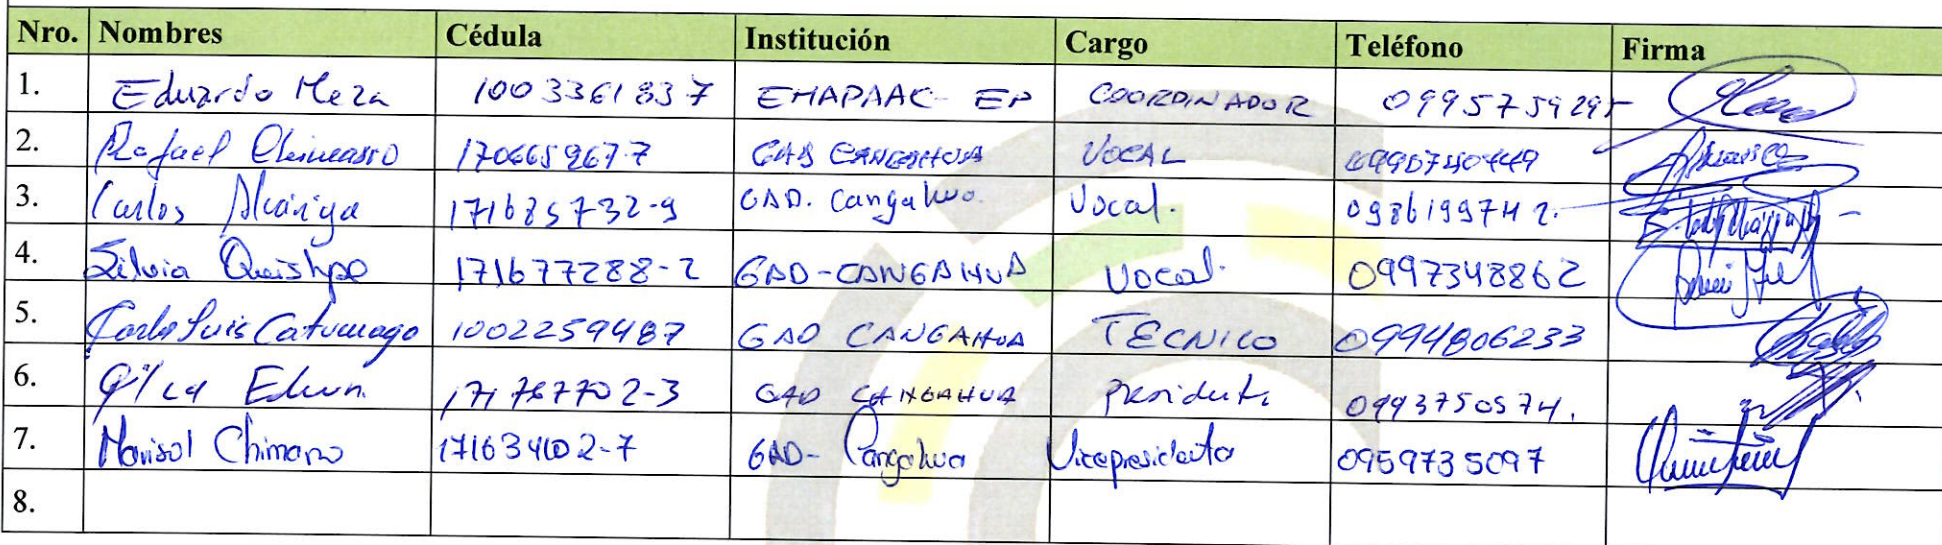 Nro. Nombres Cédula Institución Cargo Teléfono Firma
1. Eduardo Meza 1003361837 EMAPAAC-EP COORDINADOR 0995759295
2. Rafael 170665967-7 GAD CANGAHUA VOCAL
3. Carlos 171685732-9 GAD. Cangahua. Vocal. 0986199742.
4. Silvia Quishpe 171677288-2 GAD-CANGAHUA Vocal. 0997348862
5. Carlos Luis Catucuago 1002259487 GAD CANGAHUA TECNICO 0994806233
6. 171767702-3 GAD CANGAHUA presidente 0993750574.
7. Marisol 171634102-7 GAD-Cangahua Vicepresidenta 0959735097
8.